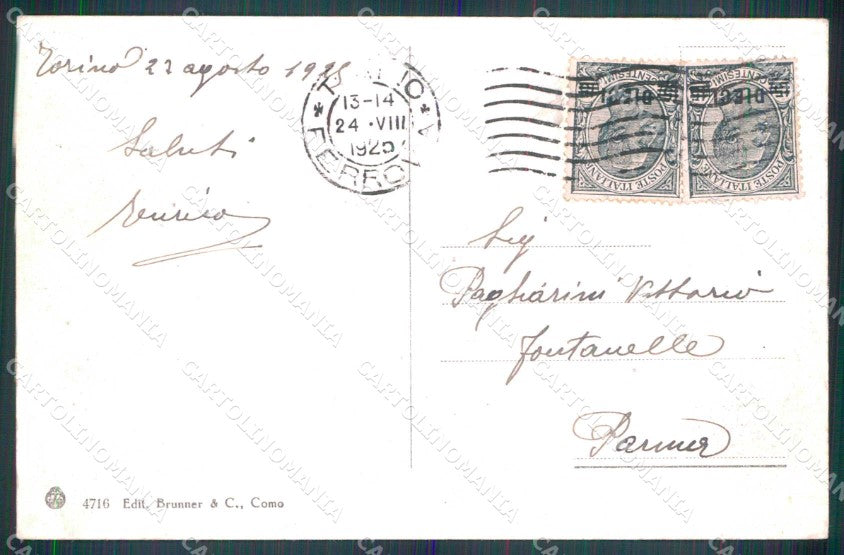 Torino 23 agosto 1925
Saluti
Enrico
TORINO
13-14
24 · VIII
1925
FERROVIA
DIECI
CENTESIMI
POSTE ITALIANE
DIECI
CENTESIMI
POSTE ITALIANE
Sig
Pagliarini Vittorio
Fontanelle
Parma
4716 Edit. Brunner & C., Como
CARTOLINOMANIA